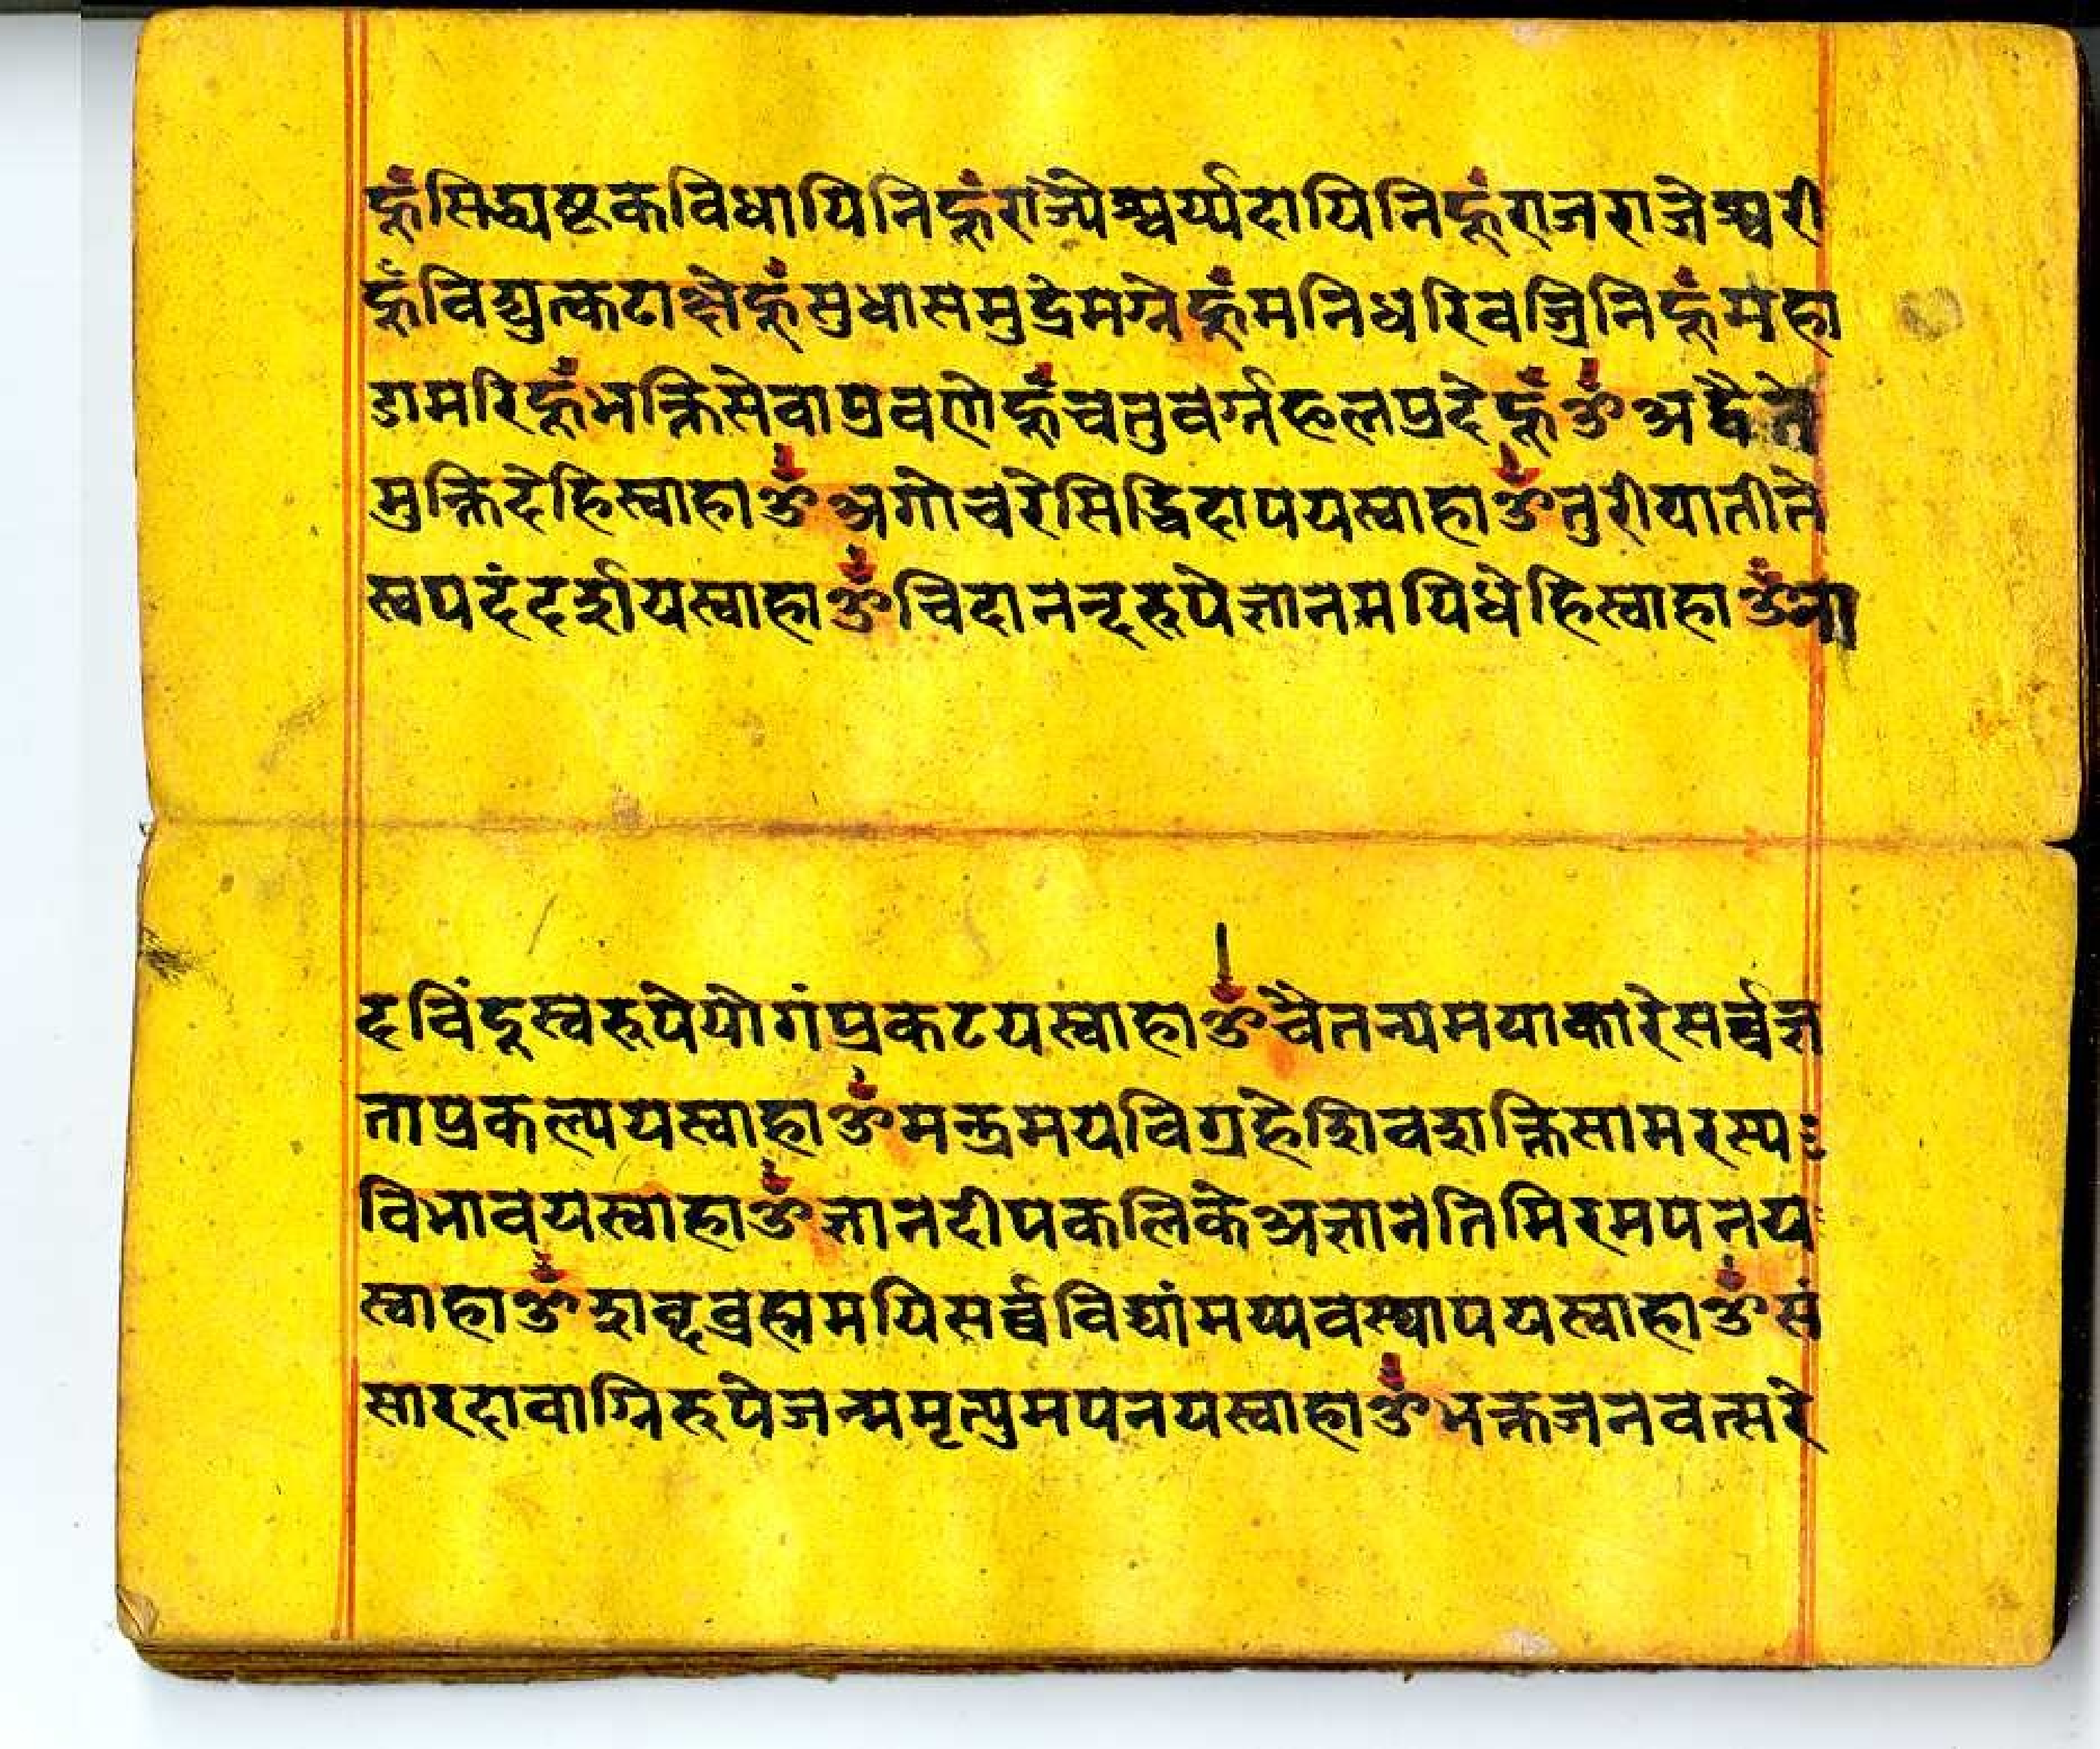 फ्रूंसिद्ध्यष्टकविधायिनिफ्रूंराज्येश्वर्य्यदायिनिफ्रूंराजराजेश्वरी
फ्रूंविद्युत्कटाक्षेफ्रूंसुधासमुद्रेमग्नेफ्रूंमनिधरिवज्रिनिफ्रूंमहा
डामरिफ्रूंभक्तिसेवाप्रवणेफ्रूंचतुवर्ग्नफलप्रदेफ्रूंॐअद्वैते
मुक्तिदेहिस्वाहाॐअगोचरेसिद्धिदापयस्वाहाॐतुरीयातीते
स्वपदंदर्शयस्वाहाॐचिदानन्दरुपेज्ञानमयिधेहिस्वाहाॐना
दविंदुस्वरुपेयोगंप्रकटयस्वाहाॐचैतन्यमयाकारेसर्व्वज्ञ
ताप्रकल्पयस्वाहाॐमन्त्रमयविग्रहेशिवशक्तिसामरस्य
विभावयस्वाहाॐज्ञानदीपकलिकेअज्ञानतिमिरमपनय
स्वाहाॐशब्दब्रह्ममयिसर्व्वविद्यांमय्यवस्थापयस्वाहाॐसं
सारदावाग्निरुपेजन्ममृत्युमपनयस्वाहाॐभक्तजनवत्सरे